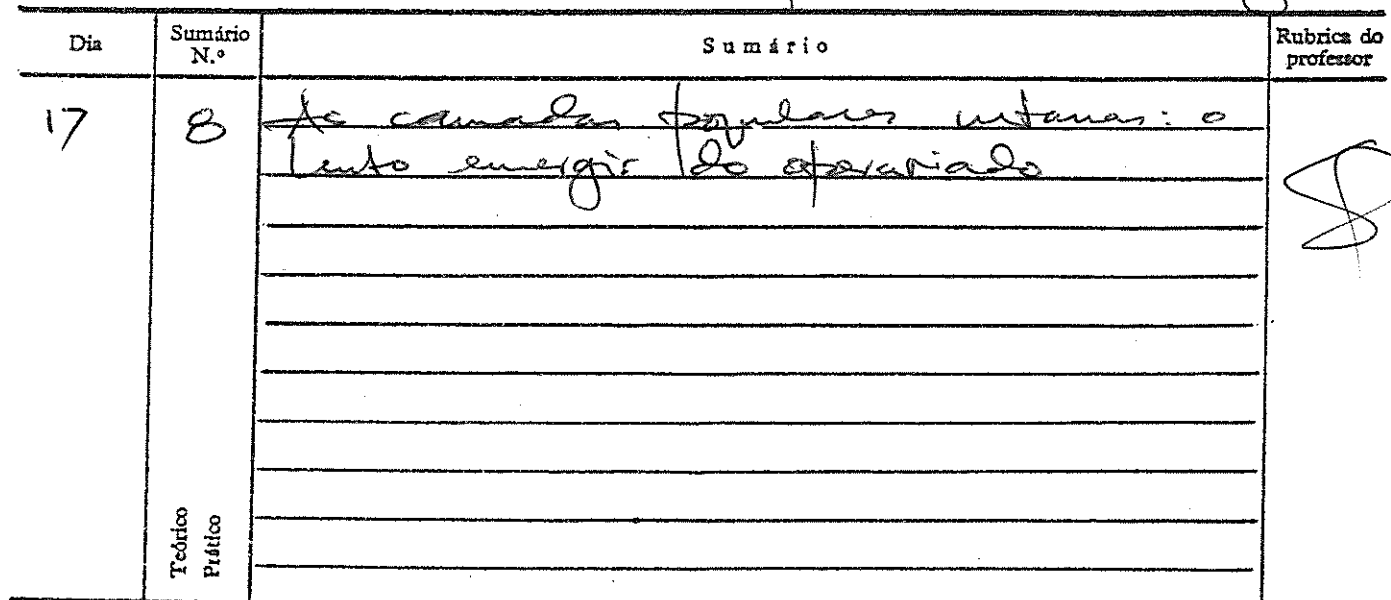 Dia
Sumário N.º
Sumário
Rubrica do professor
17
8
As camadas populares urbanas: o
lento emergir do operariado
Teórico
Prático